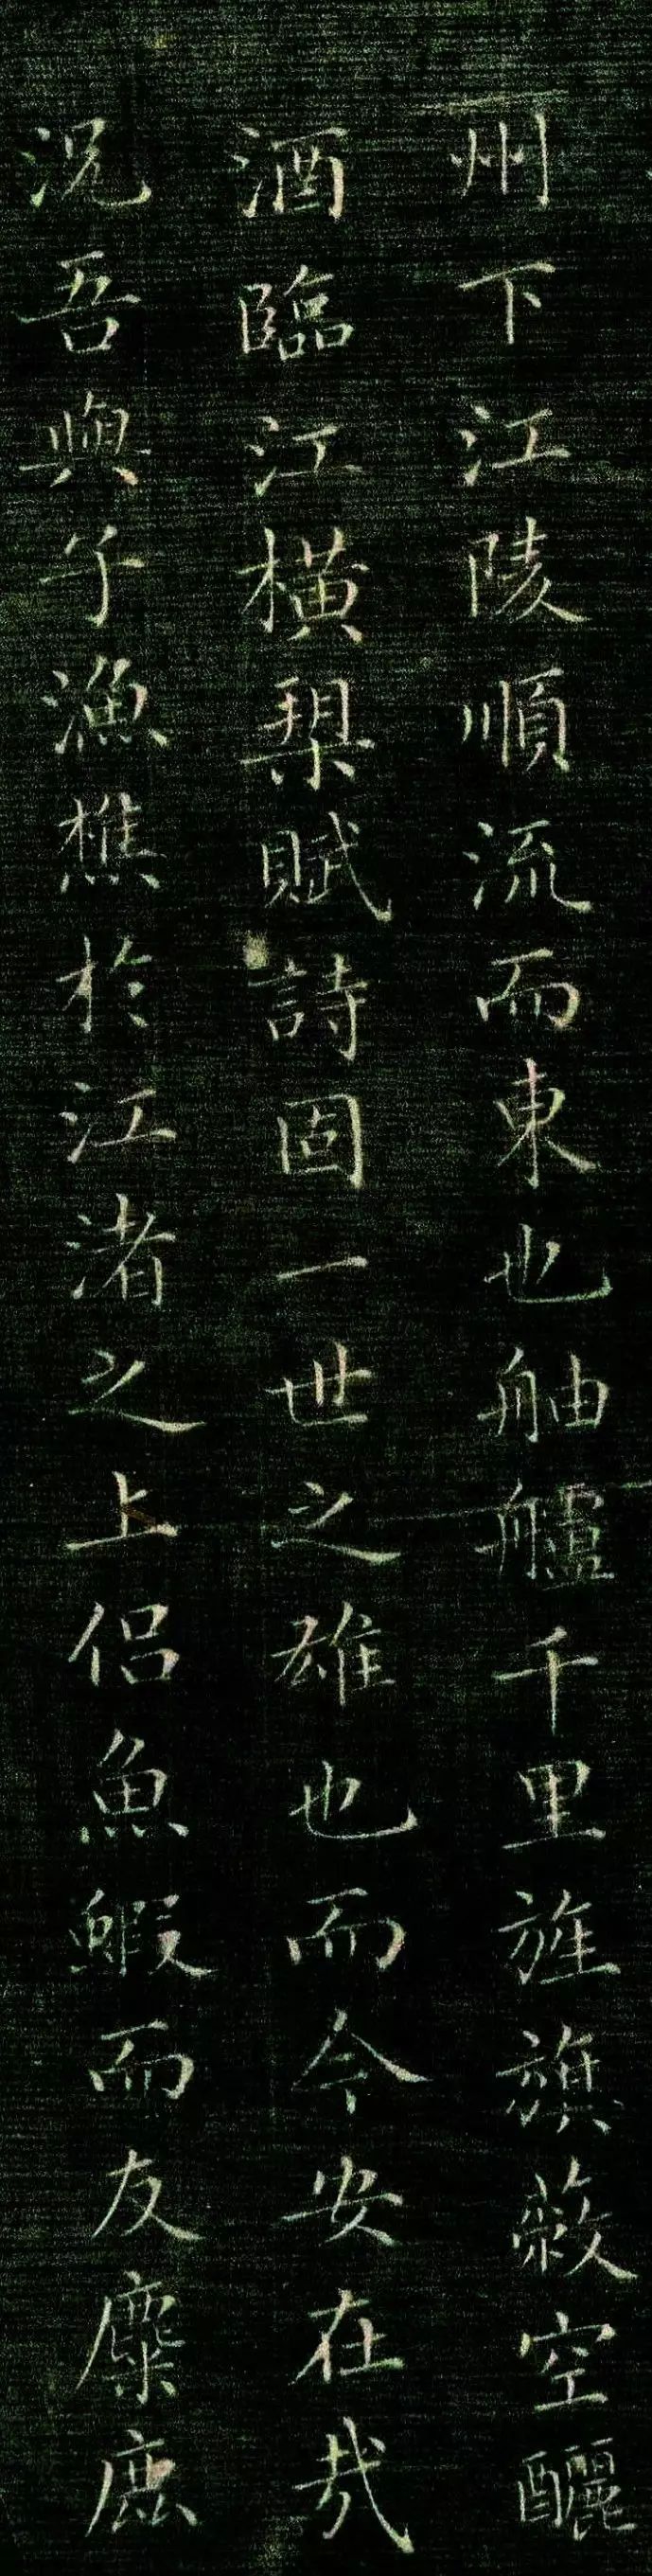 州下江陵順流而東也舳艫千里旌旗蔽空釃
酒臨江橫槊賦詩固一世之雄也而今安在哉
況吾與子漁樵於江渚之上侶魚鰕而友麋鹿